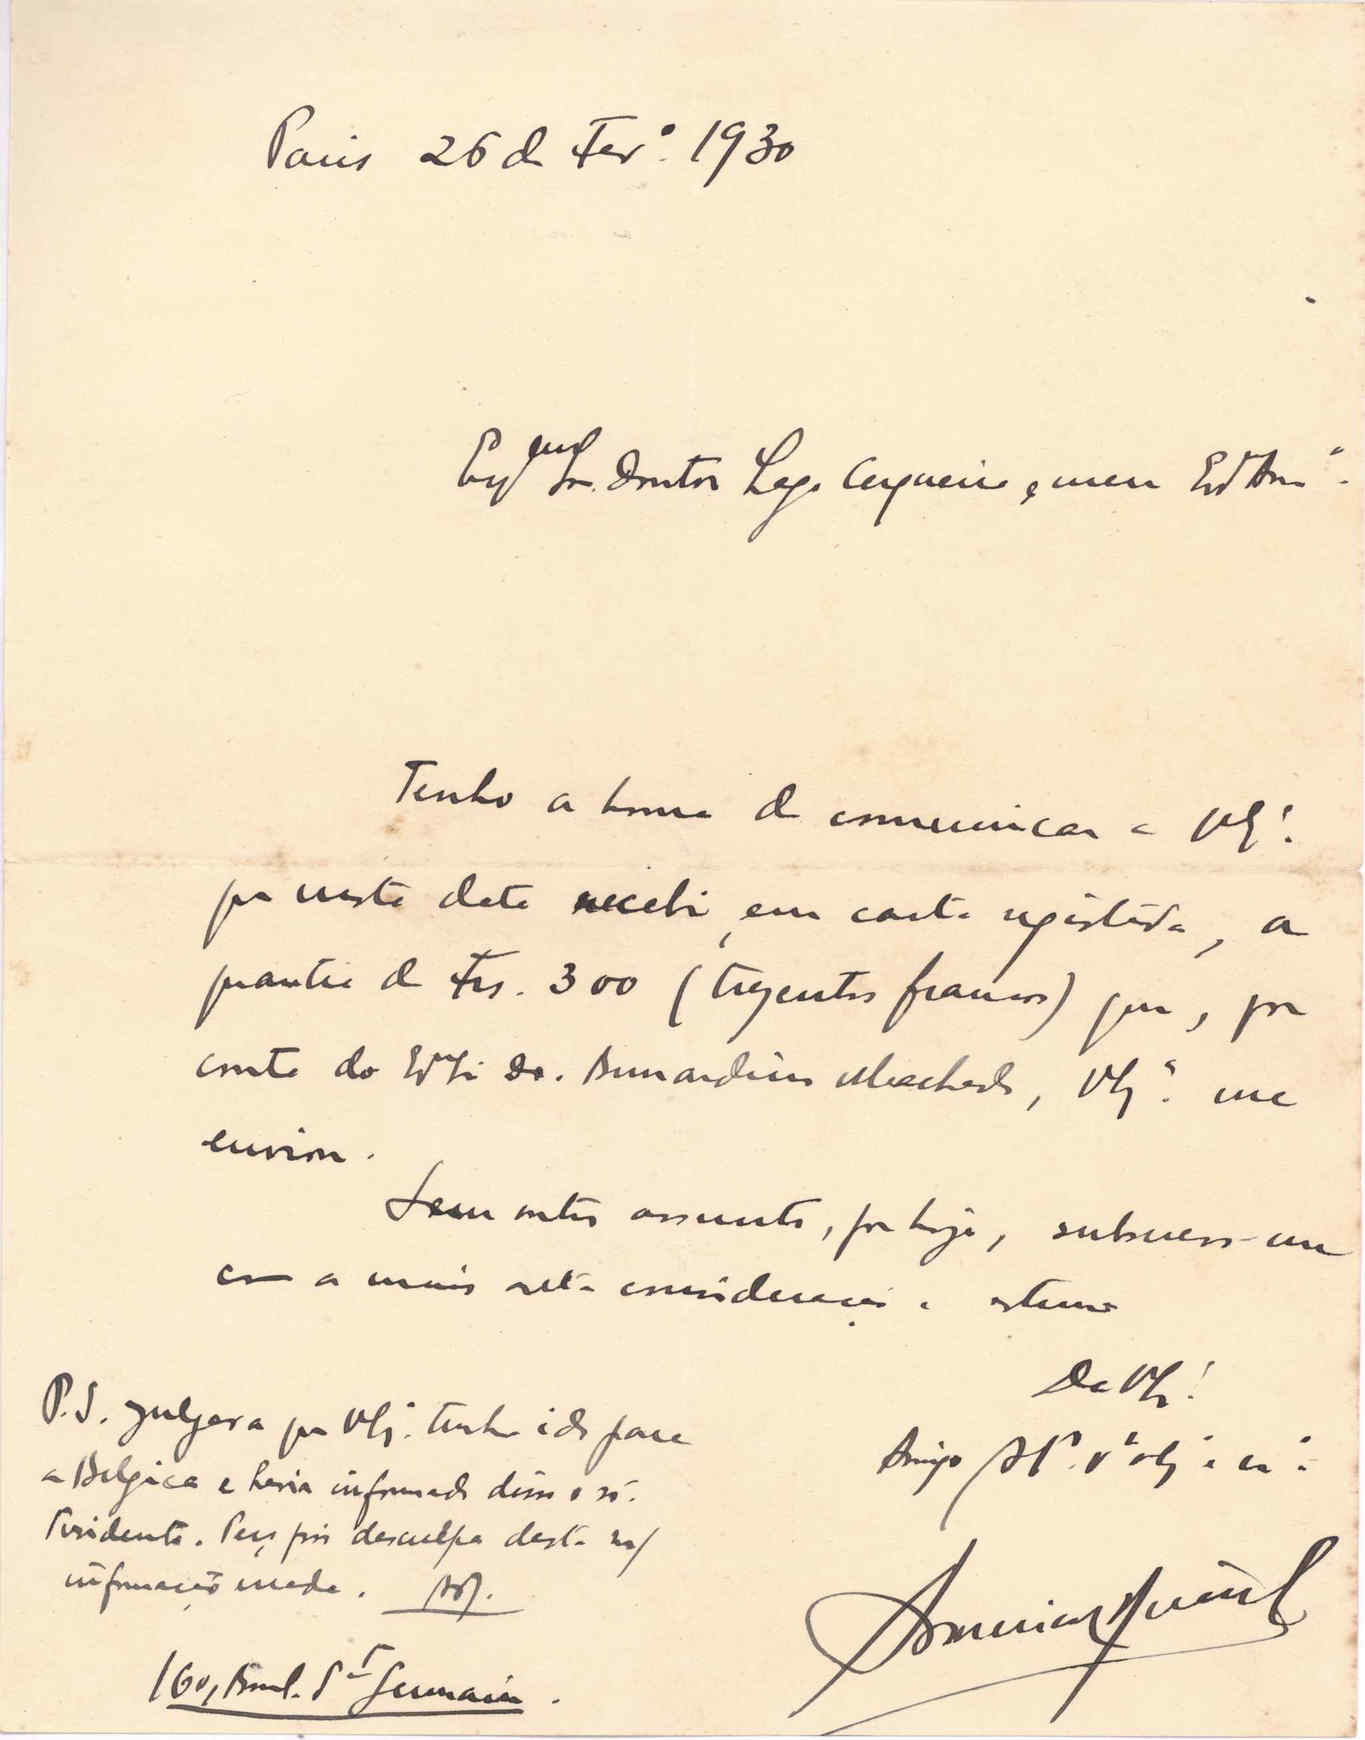 Paris 26 de Fevº. 1930
Exmo Sr. Doutor Lago Cerqueira e meu Exmo Amº.
Tenho a honra de comunicar a VExª.
que nesta data recebi, em carta registada, a
quantia de Frs. 300 (trezentos francos) que, por
conta do Sr. Dr. Bernardino Machado, VExª. me
enviou.
Sem outro assunto, por hoje, subscrevo-me
com a mais alta consideração e estima
De VExª.
Amigo
P.S. Julgava que VExª. tinha ido para
a Belgica e havia informado disso o sr.
Presidente. Peço pois desculpa desta
informação errada.
160, Boul. St Germain.